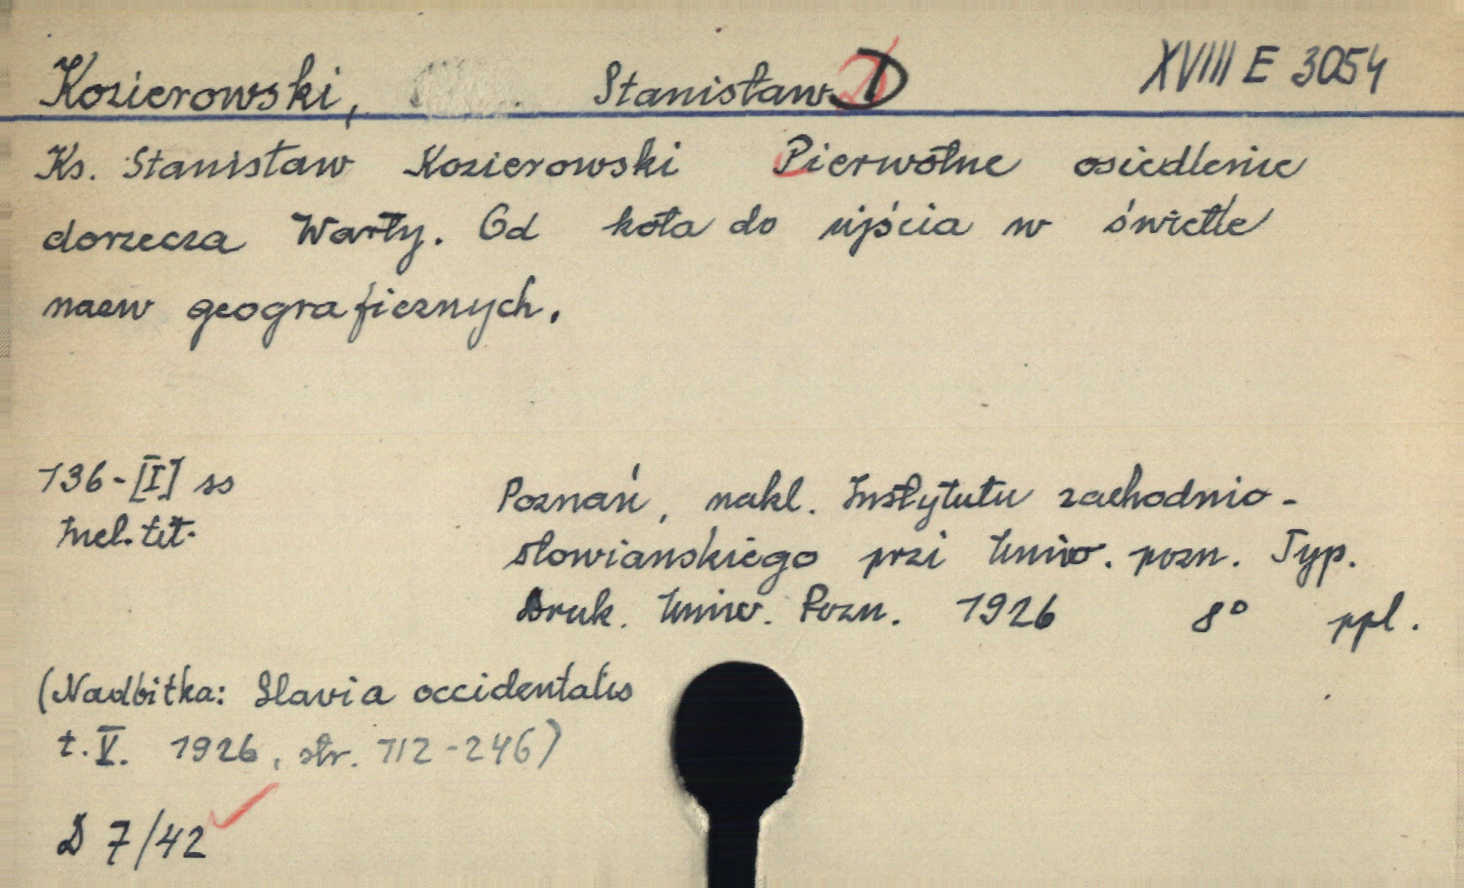 Kozierowski, Stanisław D XVIII E 3054
Ks. Stanisław Kozierowski Pierwotne osiedlenie
dorzecza Warty. Od koła do ujścia w świetle
nazw geograficznych.
136-[I] ss
Incl. tit.
Poznań, nakl. Instytutu zachodnio-
słowianskiego przi Uniw. pozn. Typ.
Druk. Uniw. Pozn. 1926 8° ppl.
(Nadbitka: Slavia occidentalis
t. V. 1926, str. 112-246)
D 7/42